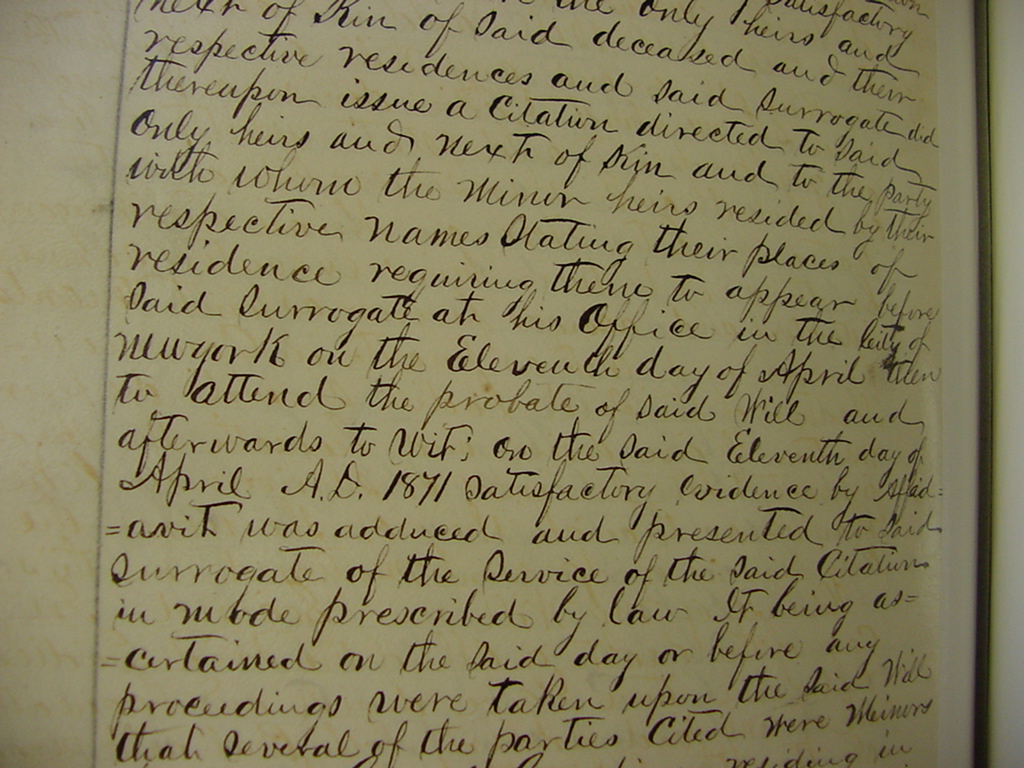 the only heirs and
next of Kin of said deceased and their
respective residences and said Surrogate did
thereupon issue a Citation directed to said
only heirs and next of Kin and to the party
with whom the Minor heirs resided by their
respective names Stating their places of
residence requiring them to appear before
said Surrogate at his Office in the City of
Newyork on the Eleventh day of April then
to attend the probate of said Will and
afterwards to wit: on the said Eleventh day of
April A.D. 1871 satisfactory evidence by Affid=
=avit was adduced and presented to said
Surrogate of the Service of the said Citation
in mode prescribed by law It being as=
=certained on the said day or before any
proceedings were taken upon the said Will
that several of the parties Cited were Minors
residing in